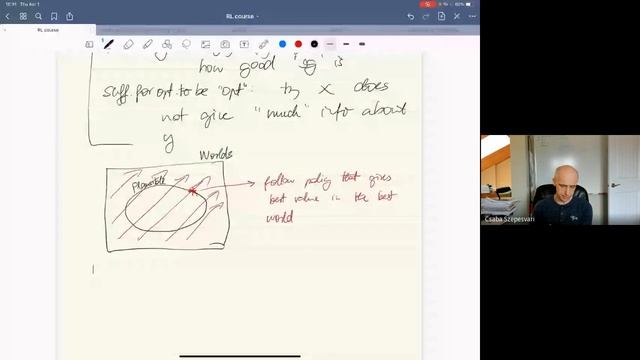 RL course
RL course
how good "y" is
suff. for opt. to be "opt": try X does
not give "much" info about
y
Worlds
plausible
follow policy that gives
best value in the best
world
Csaba Szepesvari